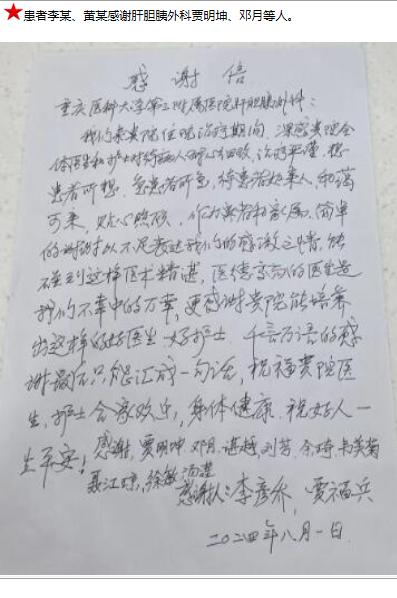 ★患者李某、黄某感谢肝胆胰外科贾明坤、邓月等人。
感谢信
重庆医科大学第二附属医院肝胆胰外科:
我们来贵院住院治疗期间,深感贵院全
体医生和护士对待病人耐心细致,治疗严谨,想
患者所想,急患者所急,待患者如亲人,和蔼
可亲,贴心照顾,作为患者和家属,简单
的谢谢难以不足表达我们的感激之情,能
碰到这样医术精湛,医德高尚的医生是
我们不幸中的万幸,更感谢贵院能培养
出这样的好医生好护士,千言万语的感
谢最后只能汇成一句话,祝福贵院医
生,护士合家欢乐,身体健康,祝好人一
生平安!
感谢,贾明坤,邓月,谌越,刘芳,余琦,
聂江琼,徐敏,
感谢人:李彦乔,贾福兵
二〇二四年八月一日